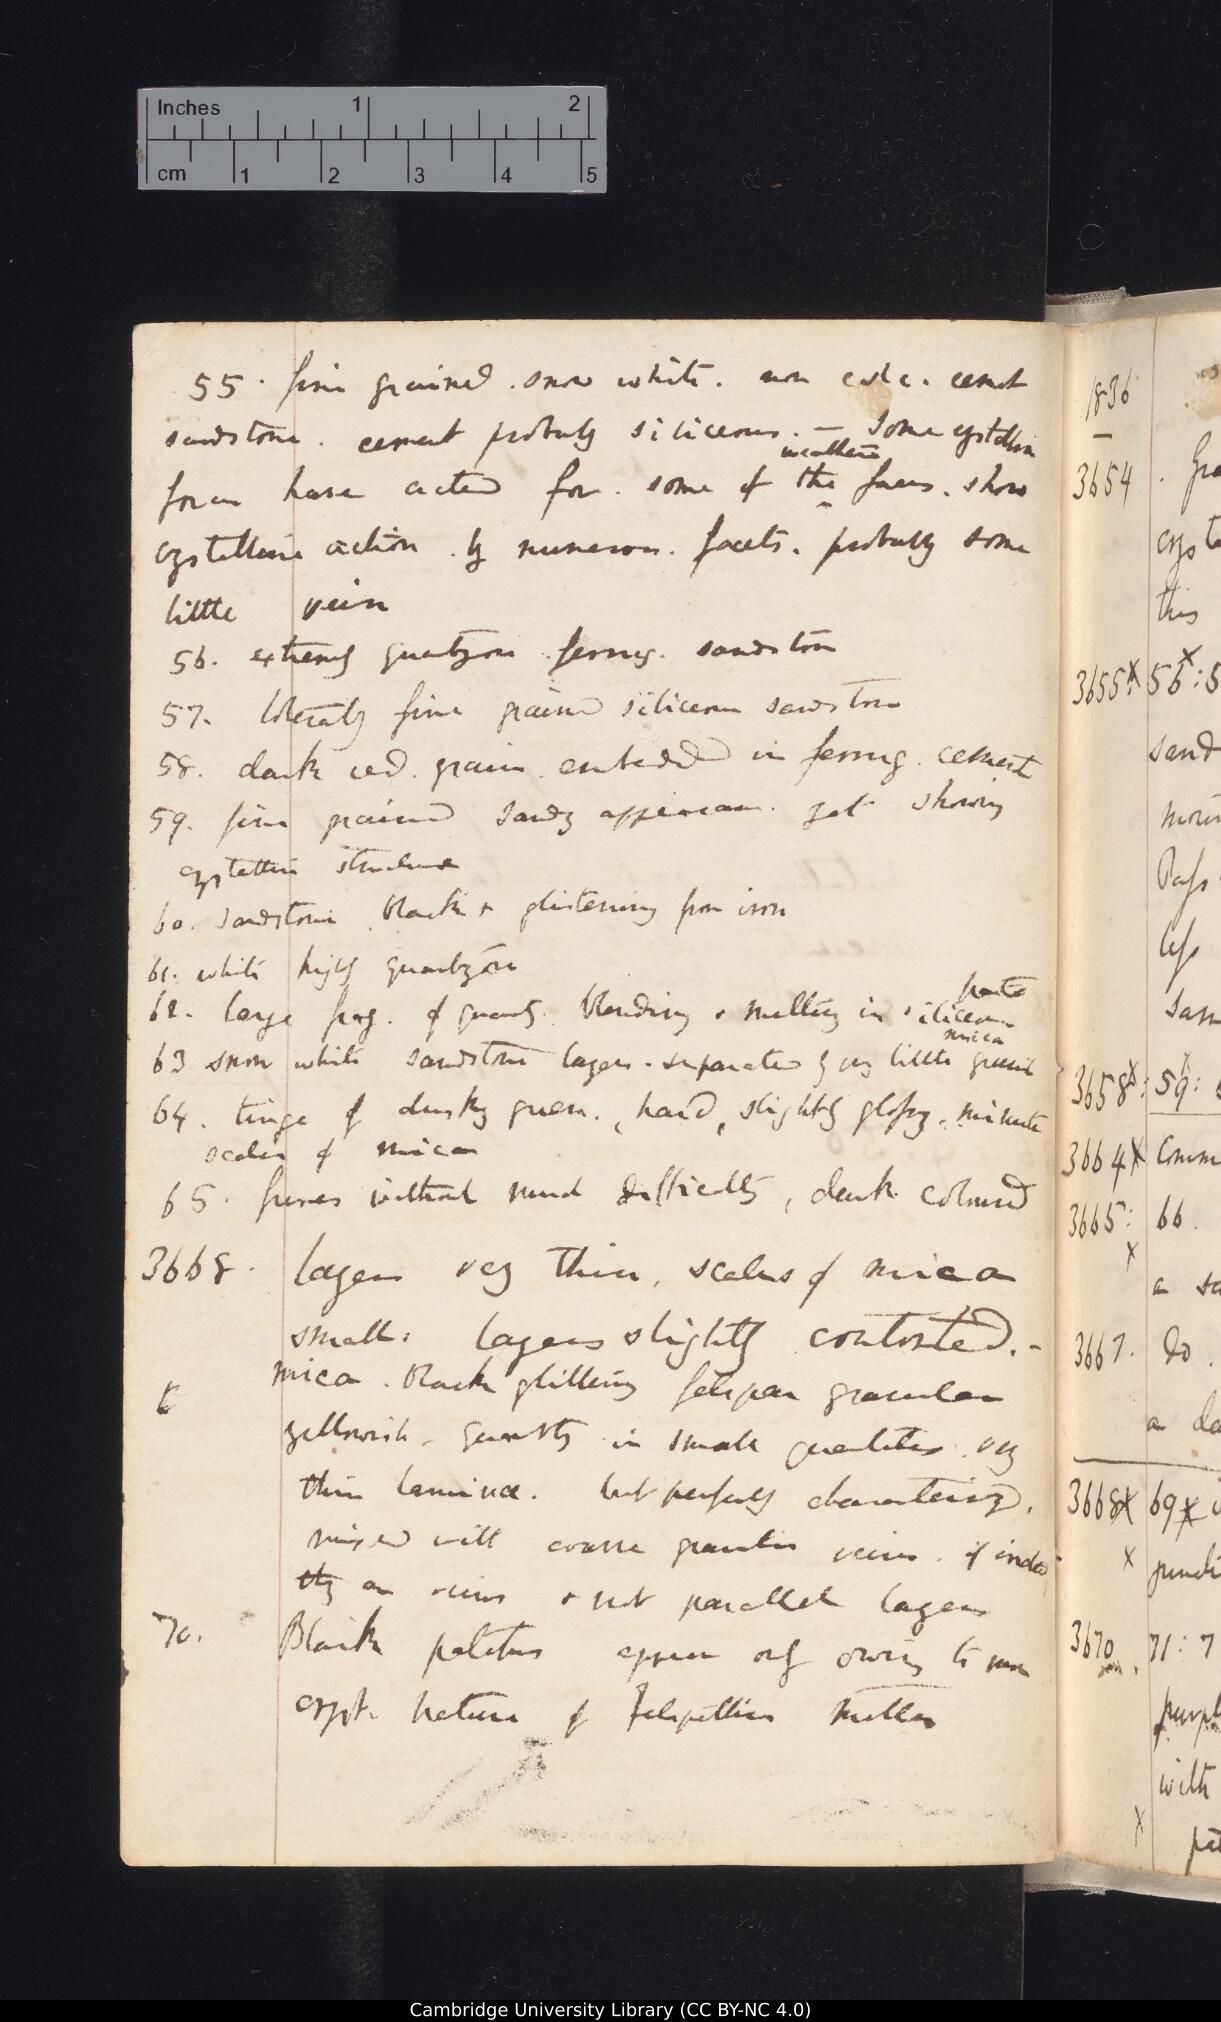 Inches 1 2
cm 1 2 3 4 5
55. fine grained. snow white. non calc. cement
sandstone. cement probably siliceous. — Some crystalline
weathered
forces have acted for. some of the faces. show
crystalline action. by numerous. facets. probably some
little vein
56. extremely quartzose ferrug. sandstone
57. tolerably fine grained siliceous sandstone
58. dark red. grains embedded in ferrug. cement
59. fine grained sandy appearance. yet showing
crystalline structure
60. sandstone black & glistening from iron
61. white highly quartzose
paste
62. large frag. of quartz. blending & melting in siliceous
mica
63 snow white sandstone layers. separated by very little green
64. tinge of dusky green. hard, slightly glossy. minute
scales of mica
65. fuses without much difficulty, dark coloured
3668. layers very thin, scales of mica
small: layers slightly contorted. -
mica. black glittering felspar granular
yellowish. quartz in small quantities. very
thin laminæ. but perfectly characterized.
mixed with coarse granular veins. if indeed
they are veins & not parallel layers
70. Black patches appear only owing to more
cryst. nature of Felspathic matter
1836
3654
3655
56:
sand
3658: 59:
3664
3665: 66.
3667. do.
3668 69
3670 71:
with
Cambridge University Library (CC BY-NC 4.0)